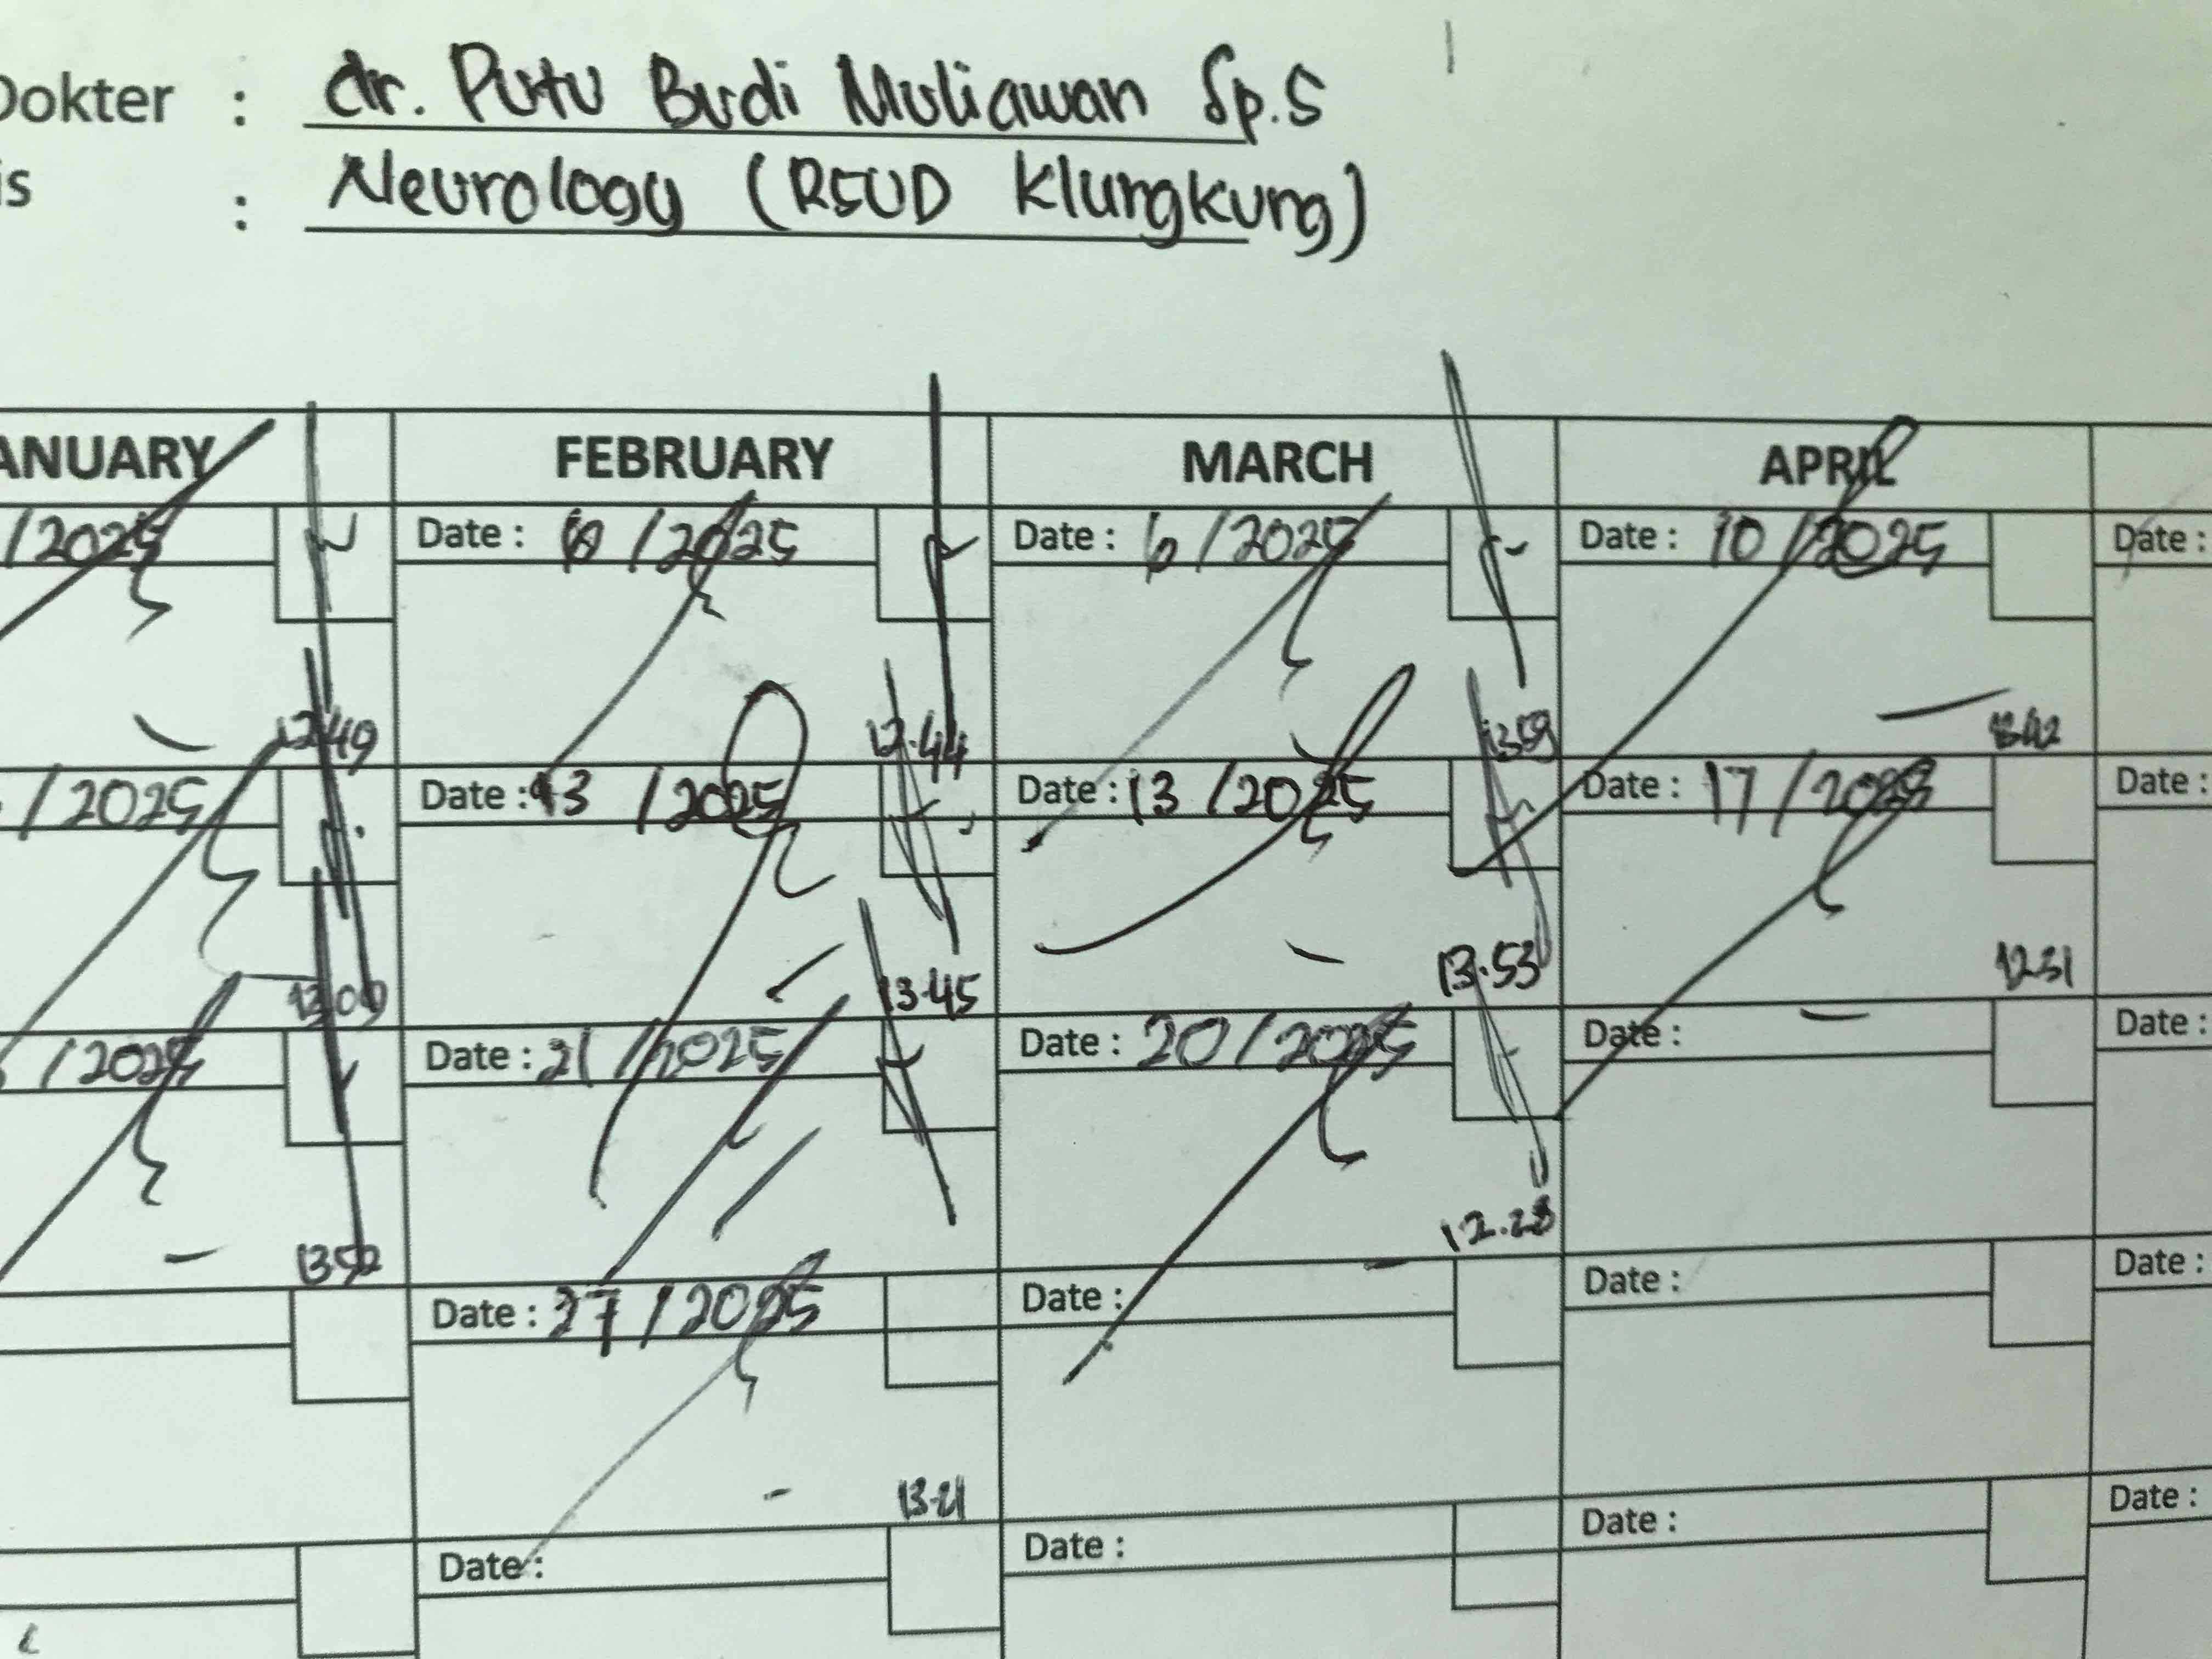 Dokter : dr. Putu Budi Muliawan Sp.S
is : Neurology (RSUD Klungkung)
ANUARY FEBRUARY MARCH APRIL
/2025 Date : /2025 Date : 6 /2025 Date : 10 /2025 Date :
12.49 12.44 13.59
/2025 Date : 13 /2025 Date : 13 /2025 Date : 17 /2025 Date :
13.09 13.45 13.53 12.31
/2025 Date : 21 /2025 Date : 20 /2025 Date : Date :
13.52 12.28
Date : 27 /2025 Date : Date : Date :
13.21
Date : Date : Date : Date :